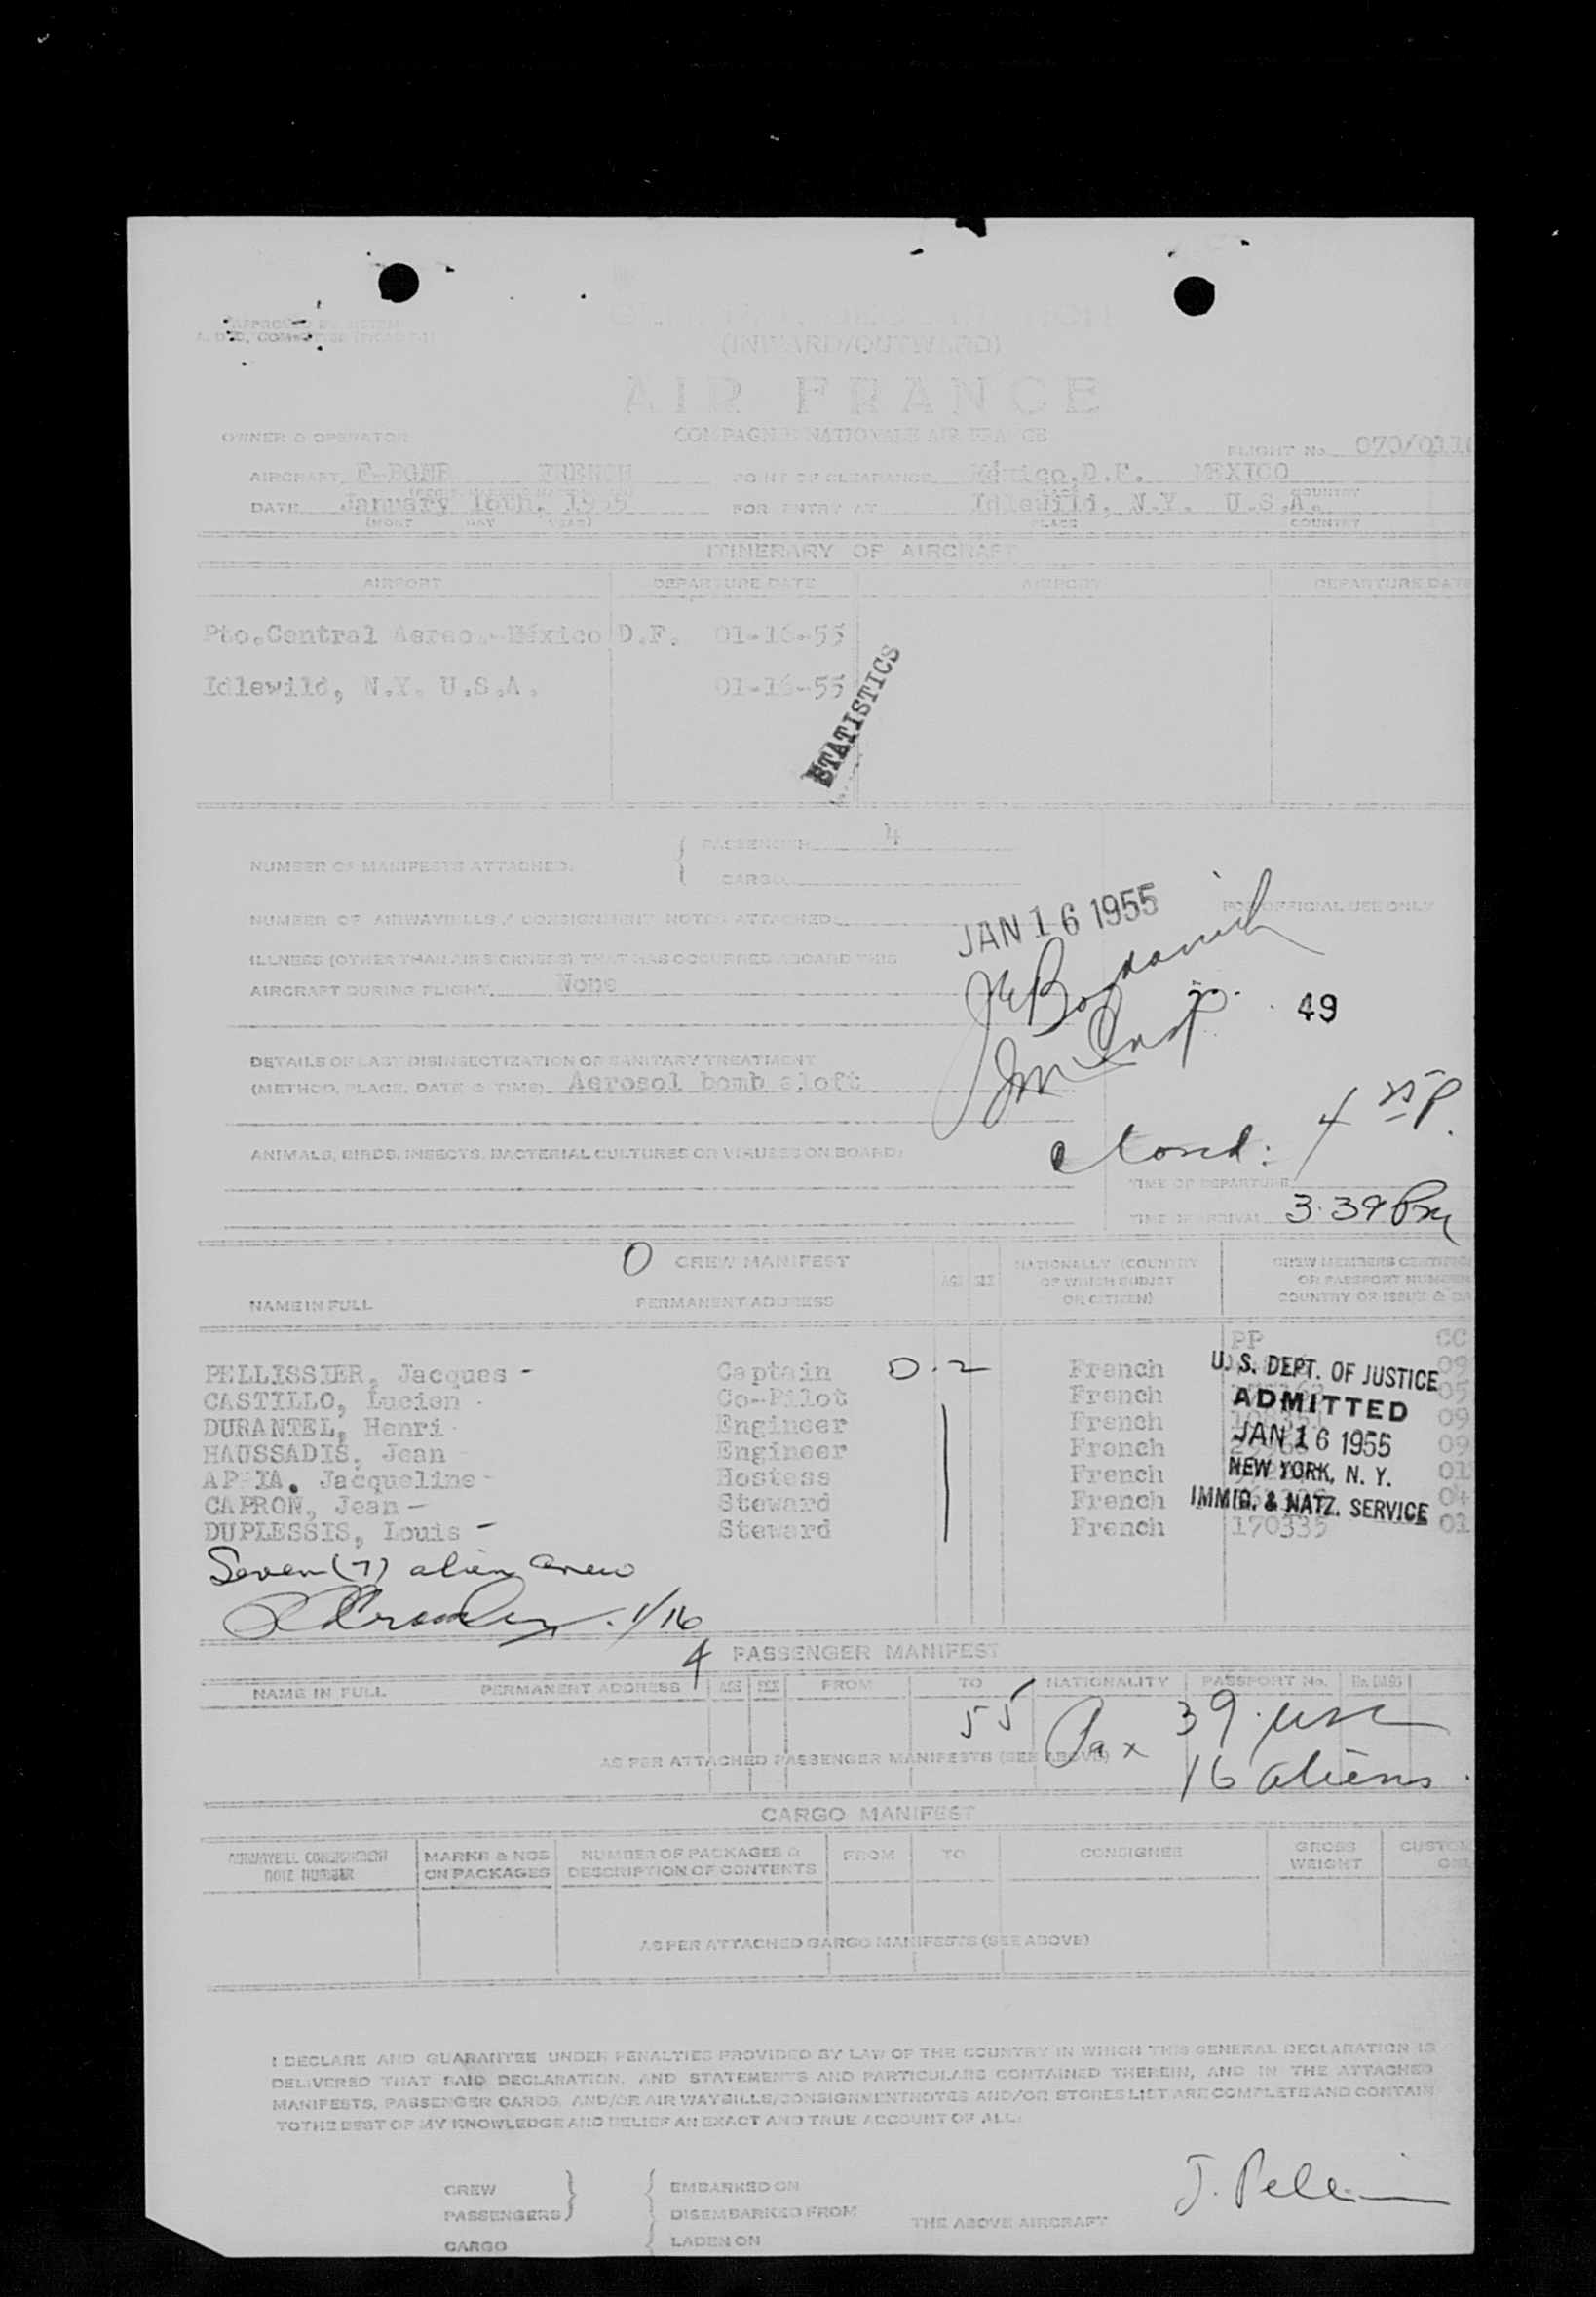 (INWARD/OUTWARD)
AIR FRANCE
COMPAGNIE NATIONALE AIR FRANCE
OWNER & OPERATOR
FLIGHT No. 070/011
AIRCRAFT FRENCH POINT OF CLEARANCE México, D.F. MEXICO
DATE January 16th, 1955 FOR ENTRY AT Idlewild, N.Y. U.S.A. COUNTRY
PLACE COUNTRY
ITINERARY OF AIRCRAFT
AIRPORT DEPARTURE DATE AIRPORT DEPARTURE DATE
Pto.Central Aereo.-México D.F. 01-16-55
Idlewild, N.Y. U.S.A. 01-16-55
STATISTICS
NUMBER OF MANIFESTS ATTACHED. PASSENGER 4
CARGO
NUMBER OF AIRWAYBILLS / CONSIGNMENT NOTES ATTACHED
JAN 16 1955
FOR OFFICIAL USE ONLY
ILLNESS (OTHER THAN AIR SICKNESS) THAT HAS OCCURRED ABOARD THIS
AIRCRAFT DURING FLIGHT. None
Insp. 49
DETAILS OF LAST DISINSECTIZATION OR SANITARY TREATMENT
(METHOD, PLACE, DATE & TIME) Aerosol bomb aloft
closed: 4 25 P.
ANIMALS, BIRDS, INSECTS, BACTERIAL CULTURES OR VIRUSES ON BOARD:
TIME OF DEPARTURE
TIME OF ARRIVAL 3.39 Pm
0 CREW MANIFEST
NAME IN FULL PERMANENT ADDRESS AGE SEX NATIONALLY (COUNTRY OF WHICH SUBJET OR CITIZEN) CREW MEMBERS OR PASSPORT NUMBER COUNTRY OF ISSUE &
PP CC
PELLISSIER, Jacques - Captain D-2 French 09
CASTILLO, Lucien Co-Pilot French 05
DURANTEL, Henri Engineer French 09
HAUSSADIS, Jean Engineer French 09
Jacqueline - Hostess French 01
CAPRON, Jean - Steward French 04
DUPLESSIS, Louis - Steward French 170335 01
U. S. DEPT. OF JUSTICE
ADMITTED
JAN 16 1955
NEW YORK, N. Y.
IMMIG. & NATZ. SERVICE
Seven (7) alien crew
1/16
4 PASSENGER MANIFEST
NAME IN FULL PERMANENT ADDRESS AGE SEX FROM TO NATIONALITY PASSPORT No.
55 Pax 39 usc
16 aliens
AS PER ATTACHED PASSENGER MANIFESTS (SEE ABOVE)
CARGO MANIFEST
AIRWAYBILL CONSIGNMENT NOTE NUMBER MARKR & NOS ON PACKAGES NUMBER OF PACKAGES & DESCRIPTION OF CONTENTS FROM TO CONSIGNEE GROSS WEIGHT
AS PER ATTACHED CARGO MANIFESTS (SEE ABOVE)
I DECLARE AND GUARANTEE UNDER PENALTIES PROVIDED BY LAW OF THE COUNTRY IN WHICH THIS GENERAL DECLARATION IS
DELIVERED THAT SAID DECLARATION, AND STATEMENTS AND PARTICULARS CONTAINED THEREIN, AND IN THE ATTACHED
MANIFESTS, PASSENGER CARDS, AND/OR AIR WAYBILLS/CONSIGNMENTNOTES AND/OR STORES LIST ARE COMPLETE AND CONTAIN
TO THE BEST OF MY KNOWLEDGE AND BELIEF AN EXACT AND TRUE ACCOUNT OF ALL:
CREW EMBARKED ON
PASSENGERS DISEMBARKED FROM THE ABOVE AIRCRAFT
CARGO LADEN ON